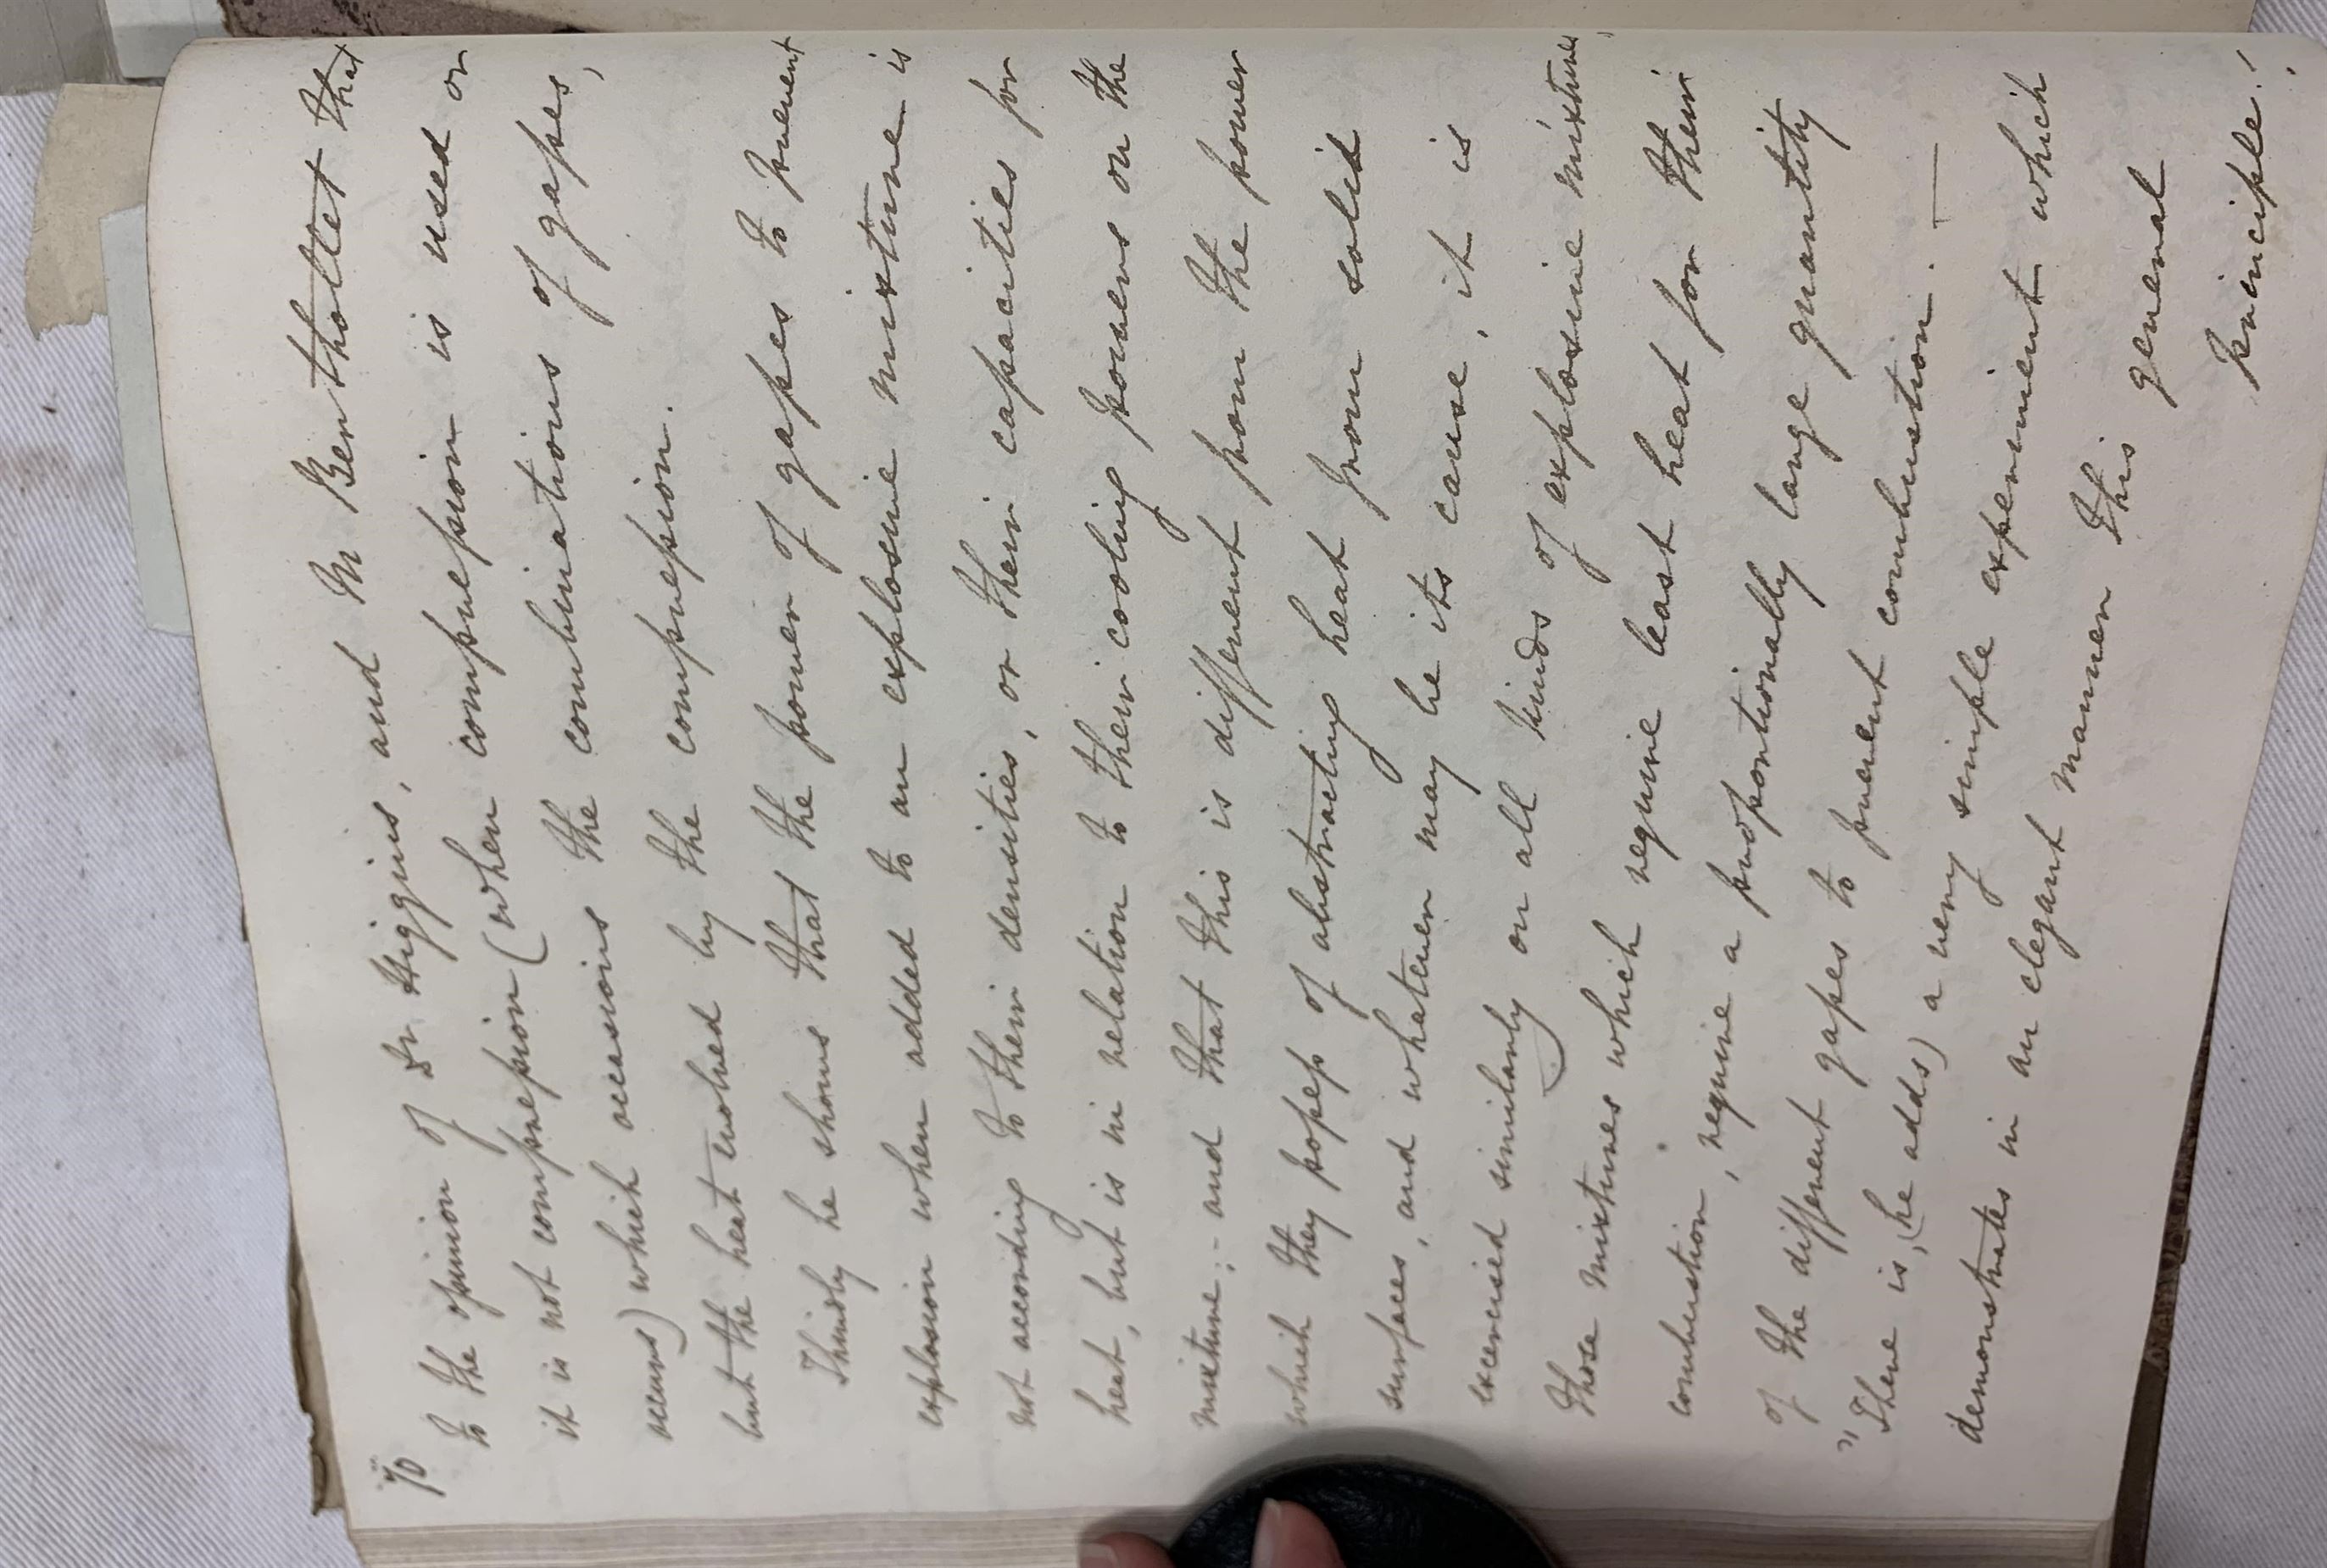 70
to the opinion of Dr Higgins, and M Berthollet that
it is not compression (when compression is used or
occurs) which occasions the combinations of gases,
but the heat evolved by the compression.
Thirdly he shows that the power of gases to prevent
explosion when added to an explosive mixture is
not according to their densities, or their capacities for
heat, but is in relation to their cooling powers on the
mixture; - and that this is different from the power
which they possess of abstracting heat from solid
surfaces, and whatever may be its cause, it is
excercised similarly on all kinds of explosive mixtures,
those mixtures which require least heat for their
combustion, require a proportionally large quantity
of the different gases to prevent combustion. —
"There is, (he adds) a very simple experiment which
demonstrates in an elegant manner this general
principle!